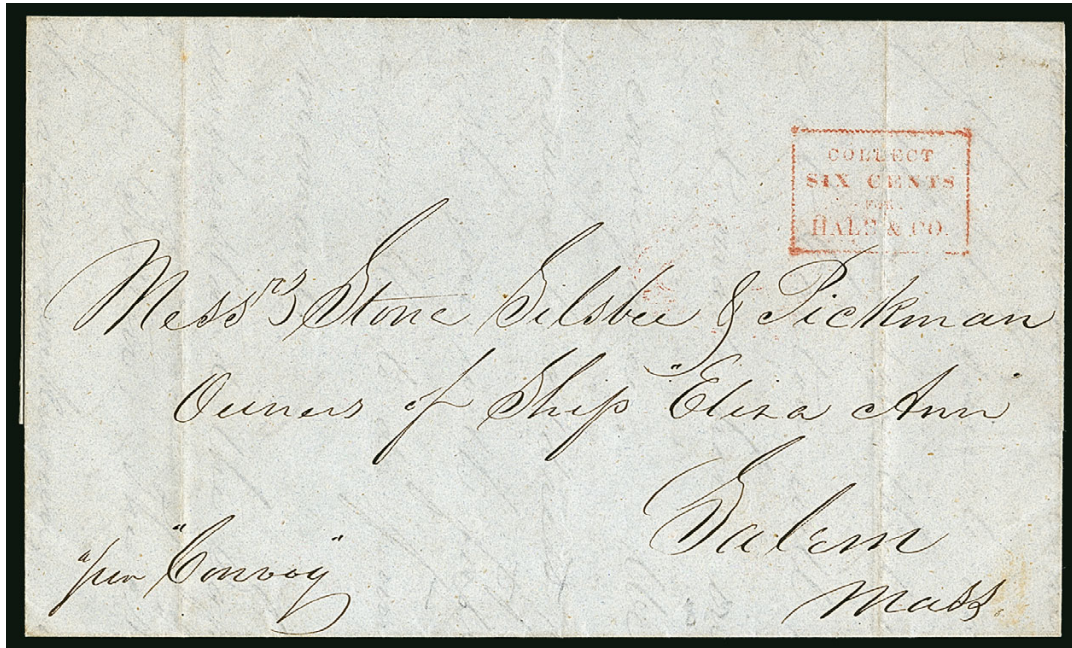 COLLECT
SIX CENTS
FOR
HALE & CO
Mess.rs Stone Silsbee & Pickman
Owners of Ship "Eliza Ann"
Salem
Mass.
per "Convoy"